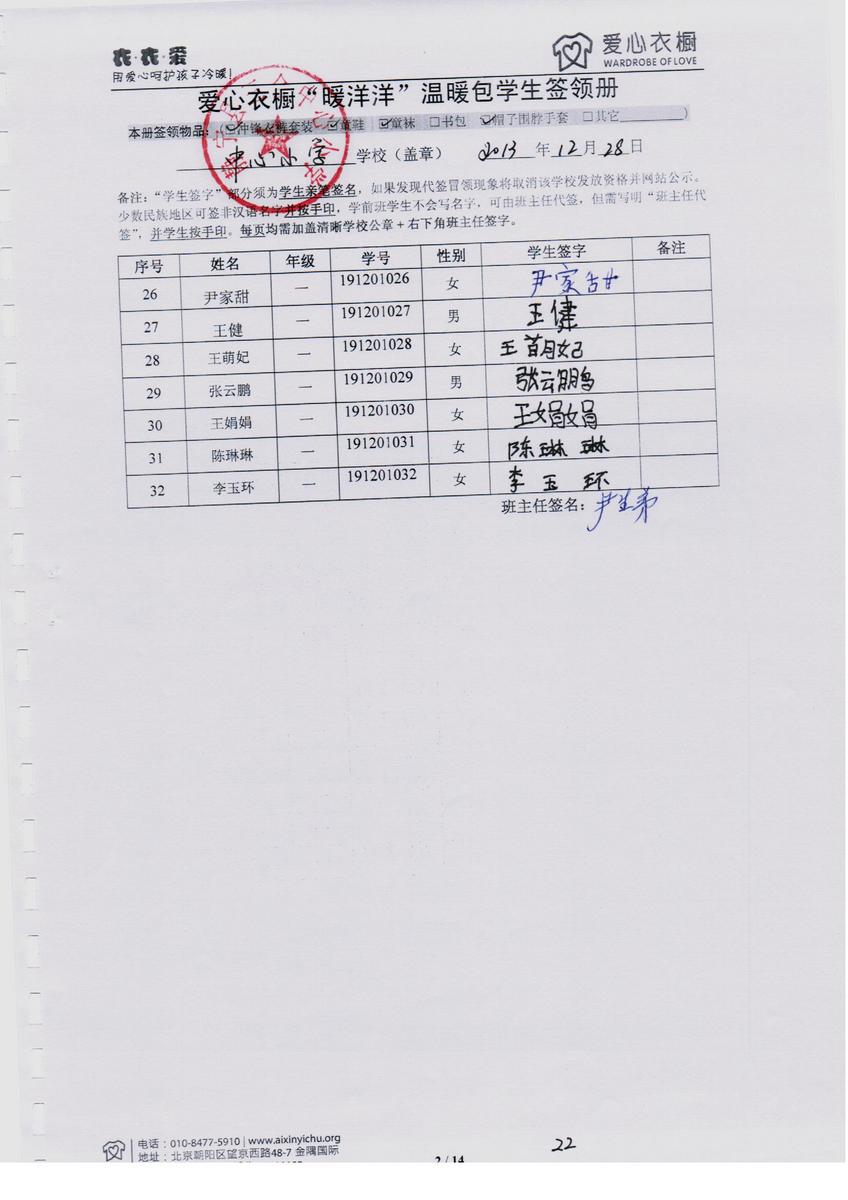 衣·衣·爱
用爱心呵护孩子冷暖!
爱心衣橱
WARDROBE OF LOVE
爱心衣橱“暖洋洋”温暖包学生签领册
本册签领物品:(☑冲锋衣裤套装 ☑童鞋 ☑童袜 □书包 ☑帽子围脖手套 □其它________)
中心小学 学校(盖章) 2013 年 12 月 28 日
备注:“学生签字”部分须为学生亲笔签名,如果发现代签冒领现象将取消该学校发放资格并网站公示。
少数民族地区可签非汉语名字并按手印,学前班学生不会写名字,可由班主任代签,但需写明“班主任代
签”,并学生按手印。每页均需加盖清晰学校公章+右下角班主任签字。
序号 姓名 年级 学号 性别 学生签字 备注
26 尹家甜 一 191201026 女 尹家甜
27 王健 一 191201027 男 王健
28 王萌妃 一 191201028 女 王萌妃
29 张云鹏 一 191201029 男 张云鹏
30 王娟娟 一 191201030 女 王娟娟
31 陈琳琳 一 191201031 女 陈琳琳
32 李玉环 一 191201032 女 李玉环
班主任签名:
电话:010-8477-5910 | www.aixinyichu.org
地址:北京朝阳区望京西路48-7 金隅国际
2 / 14
22